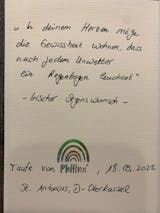 u in deinem Herzen möge
die Gewissheit wohnen, dass
nach jedem Unwetter
ein Regenbogen leuchtet"
- Irischer Segenswunsch -
Taufe von Philine, 18.09.2022
St. Antonius, D-Oberkassel